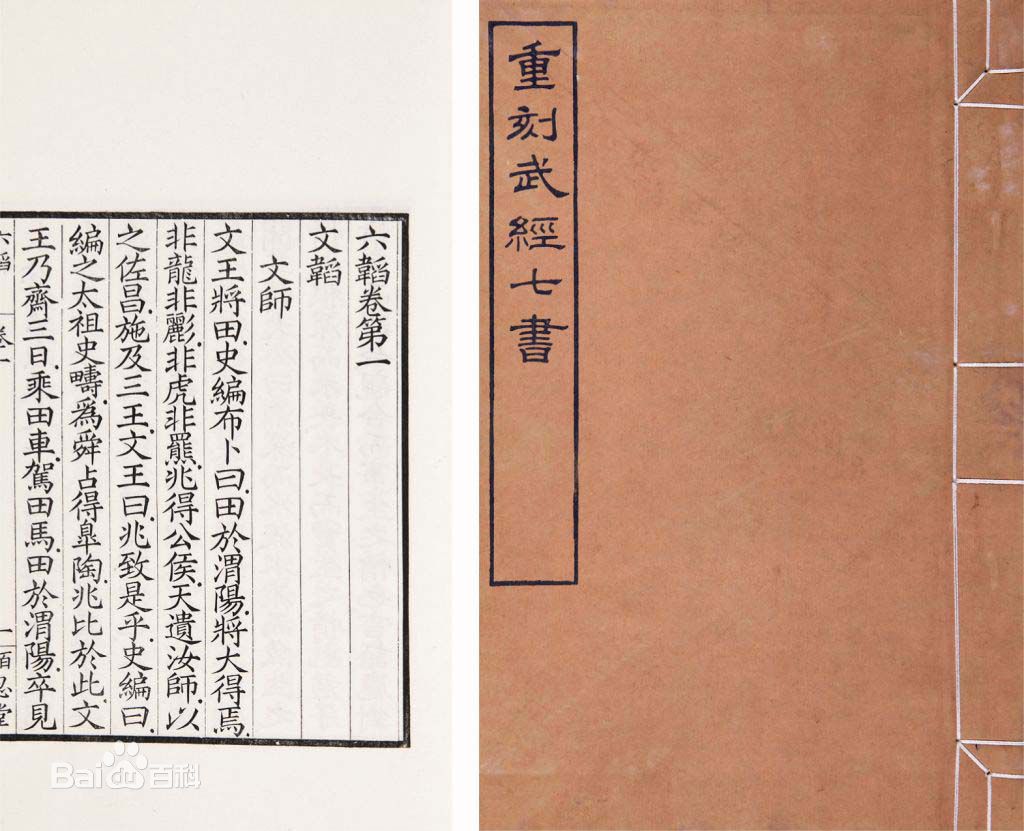 重刻武經七書
六韜卷第一
文韜
文師
文王將田史編布卜曰田於渭陽將大得焉
非龍非彲非虎非羆兆得公侯天遺汝師以
之佐昌施及三王文王曰兆致是乎史編曰
編之太祖史疇為舜占得臯陶兆比於此文
王乃齋三日乘田車駕田馬田於渭陽卒見
六韜 卷一 一 百忍堂
Bai百科